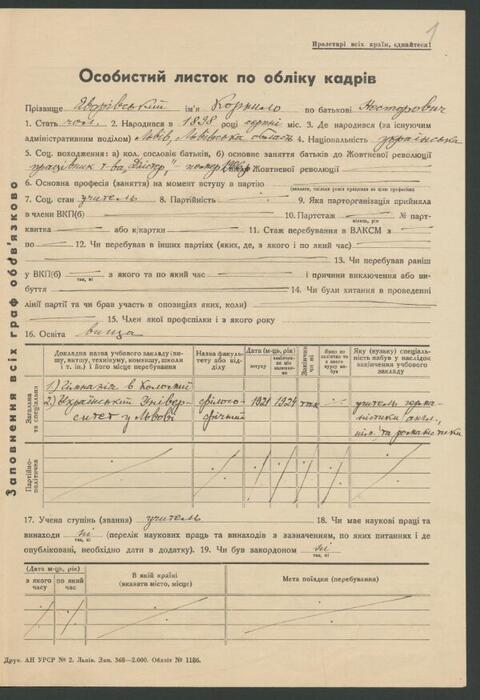 1
Пролетарі всіх країн, єднайтеся!
Особистий листок по обліку кадрів
Прізвище Яворівський ім'я Корнило по батькові Несторович
1. Стать чол. 2. Народився в 1898 році серпні міс. 3. Де народився (за існуючим
адміністративним поділом) Львів, Львівська область 4. Національність українська
5. Соц. походження: а) кол. сословіє батьків, б) основне заняття батьків до Жовтневої революції
працівник т-ва „Дністер" Жовтневої революції
6. Основна професія (заняття) на момент вступу в партію
7. Соц. стан учитель 8. Партійність 9. Яка парторганізація прийняла
в члени ВКП(б) 10. Партстаж № парт-
місяць, рік
квитка або к/картки 11. Стаж перебування в ВЛКСМ з
по 12. Чи перебував в інших партіях (яких, де, з якого і по який час)
13. Чи перебував раніш
у ВКП(б) з якого та по який час і причини виключення або ви-
так, ні
буття 14. Чи були хитання в проведенні
лінії партії та чи брав участь в опозиціях яких, коли)
15. Член якої профспілки і з якого року
16. Освіта вища
Заповнення всіх граф обов'язково
Докладна назва учбового закладу (ви-
шу, втузу, технікуму, комвишу, школи
і т. ін.) і його місце перебування
Назва факуль-
тету або від-
ділу
Дата (м-ць, рік)
вступу
Закінчив
чи ні
Яку (вузьку) спеціаль-
ність набув у наслідок
закінчення учбового
закладу
Загальна
та спеціальна
1) Гімназія в Коломиї
2) Український Універ-
ситет у Львові
філосо-
фічний
1921 1924 так
учитель герма-
ністики англ.
та романістики
Партійно-
політична
17. Учена ступінь (звання) учитель 18. Чи має наукові праці та
винаходи ні (перелік наукових праць та винаходів з зазначенням, по яких питаннях і де
так, ні
опубліковані, необхідно дати в додатку). 19. Чи був закордоном ні
так, ні
(Дата м-ць, рік)
з якого
часу
по який
час
В якій країні
(вказати місто, місце)
Мета поїздки (перебування)
Друк. АН УРСР № 2. Львів. Зам. 368—2.000. Обліт № 1186.